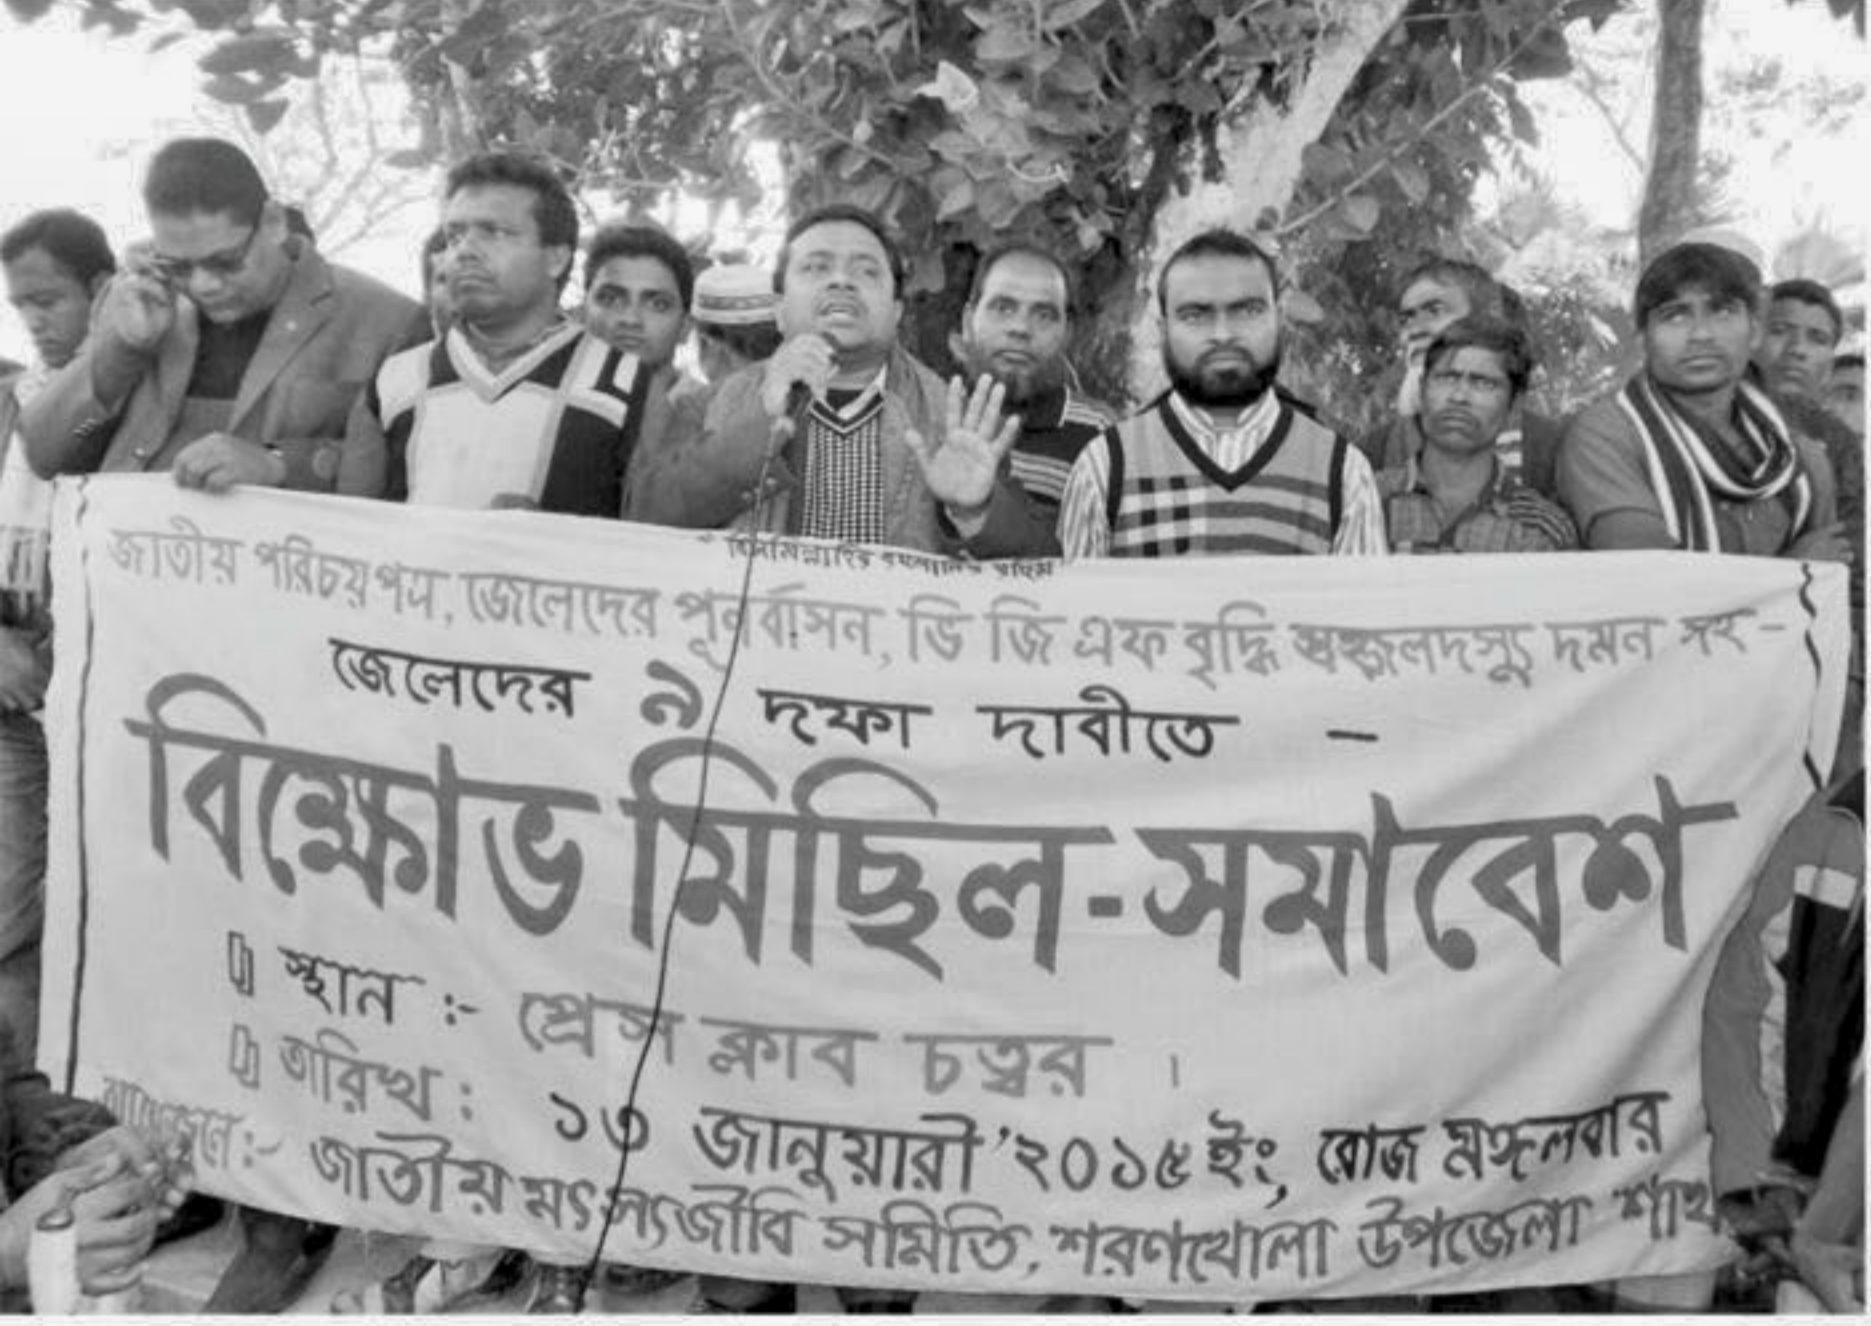 বিসমিল্লাহির রহমানির রহিম
জাতীয় পরিচয়পত্র, জেলেদের পুনর্বাসন, ভি জি এফ বৃদ্ধি জলদস্যু দমন সহ-
জেলেদের ৯ দফা দাবীতে -
বিক্ষোভ মিছিল-সমাবেশ
স্থান :- প্রেস ক্লাব চত্ত্বর ।
তারিখ : ১৩ জানুয়ারী '২০১৫ ইং, রোজ মঙ্গলবার
জাতীয় মৎস্যজীবি সমিতি, শরণখোলা উপজেলা